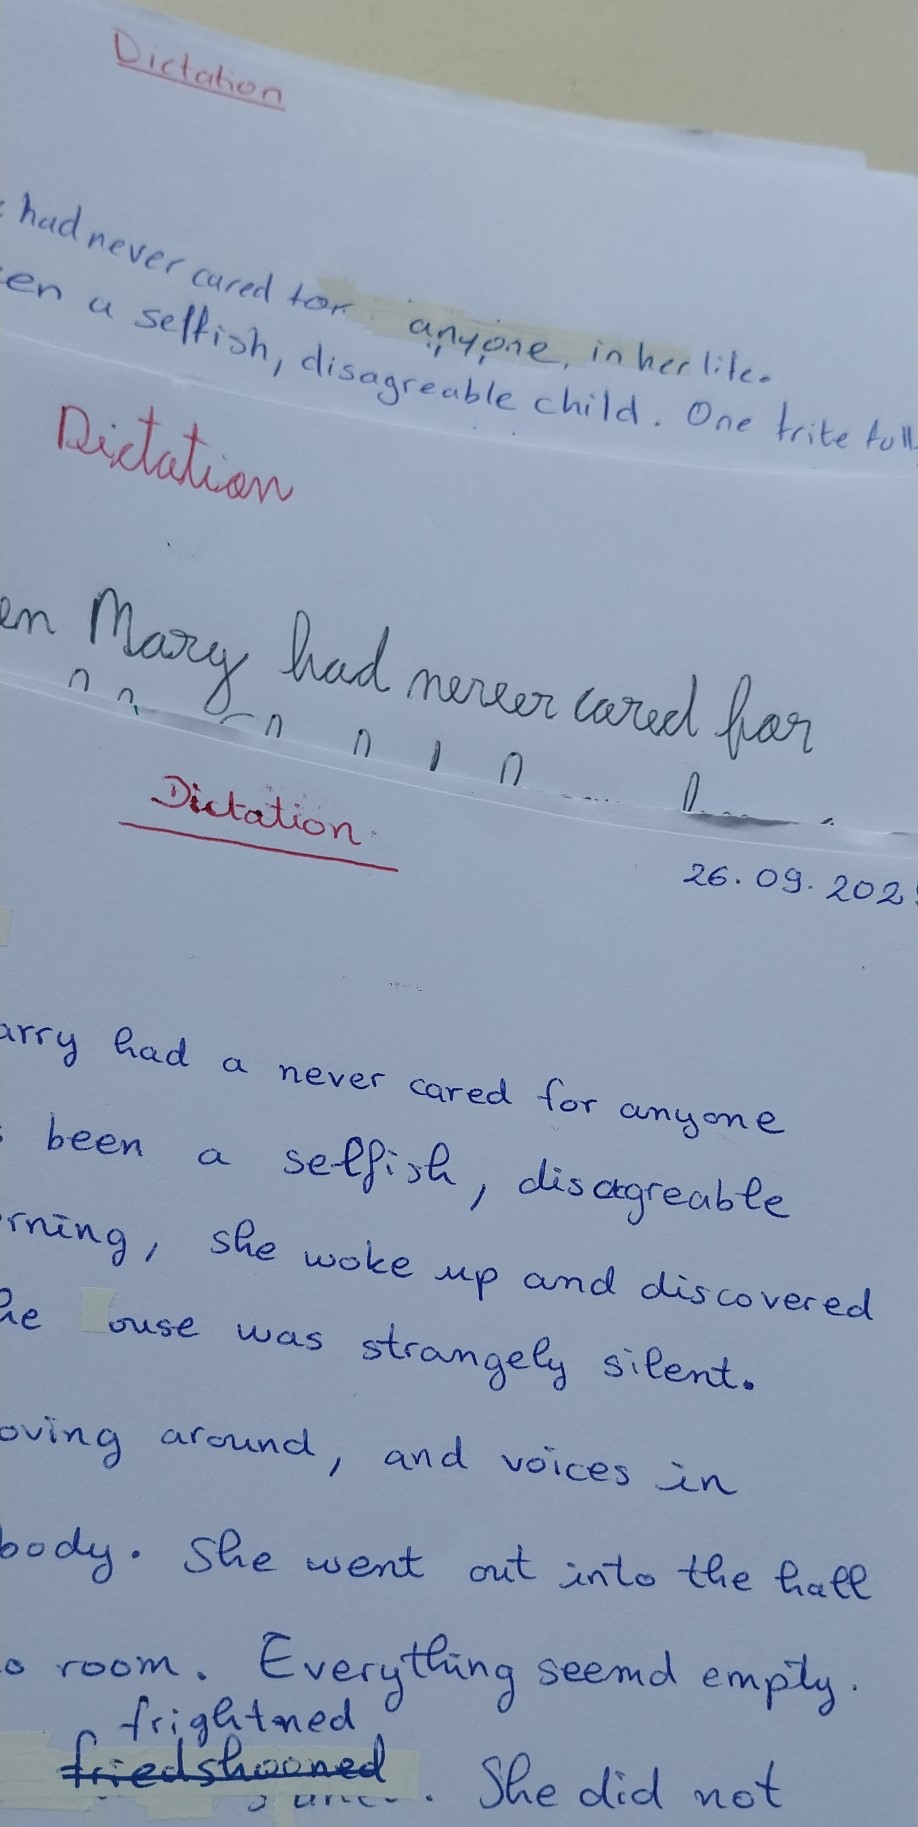 Dictation
had never cared for anyone, in her life.
en a selfish, disagreable child. One
Dictation
en Mary had never cared for
Dictation
26.09.202
arry had a never cared for anyone
been a selfish, disagreable
rning, she woke up and discovered
he ouse was strangely silent.
oving around, and voices in
body. She went out into the hall
o room. Everything seemd empty.
frightned
friedshooned . She did not